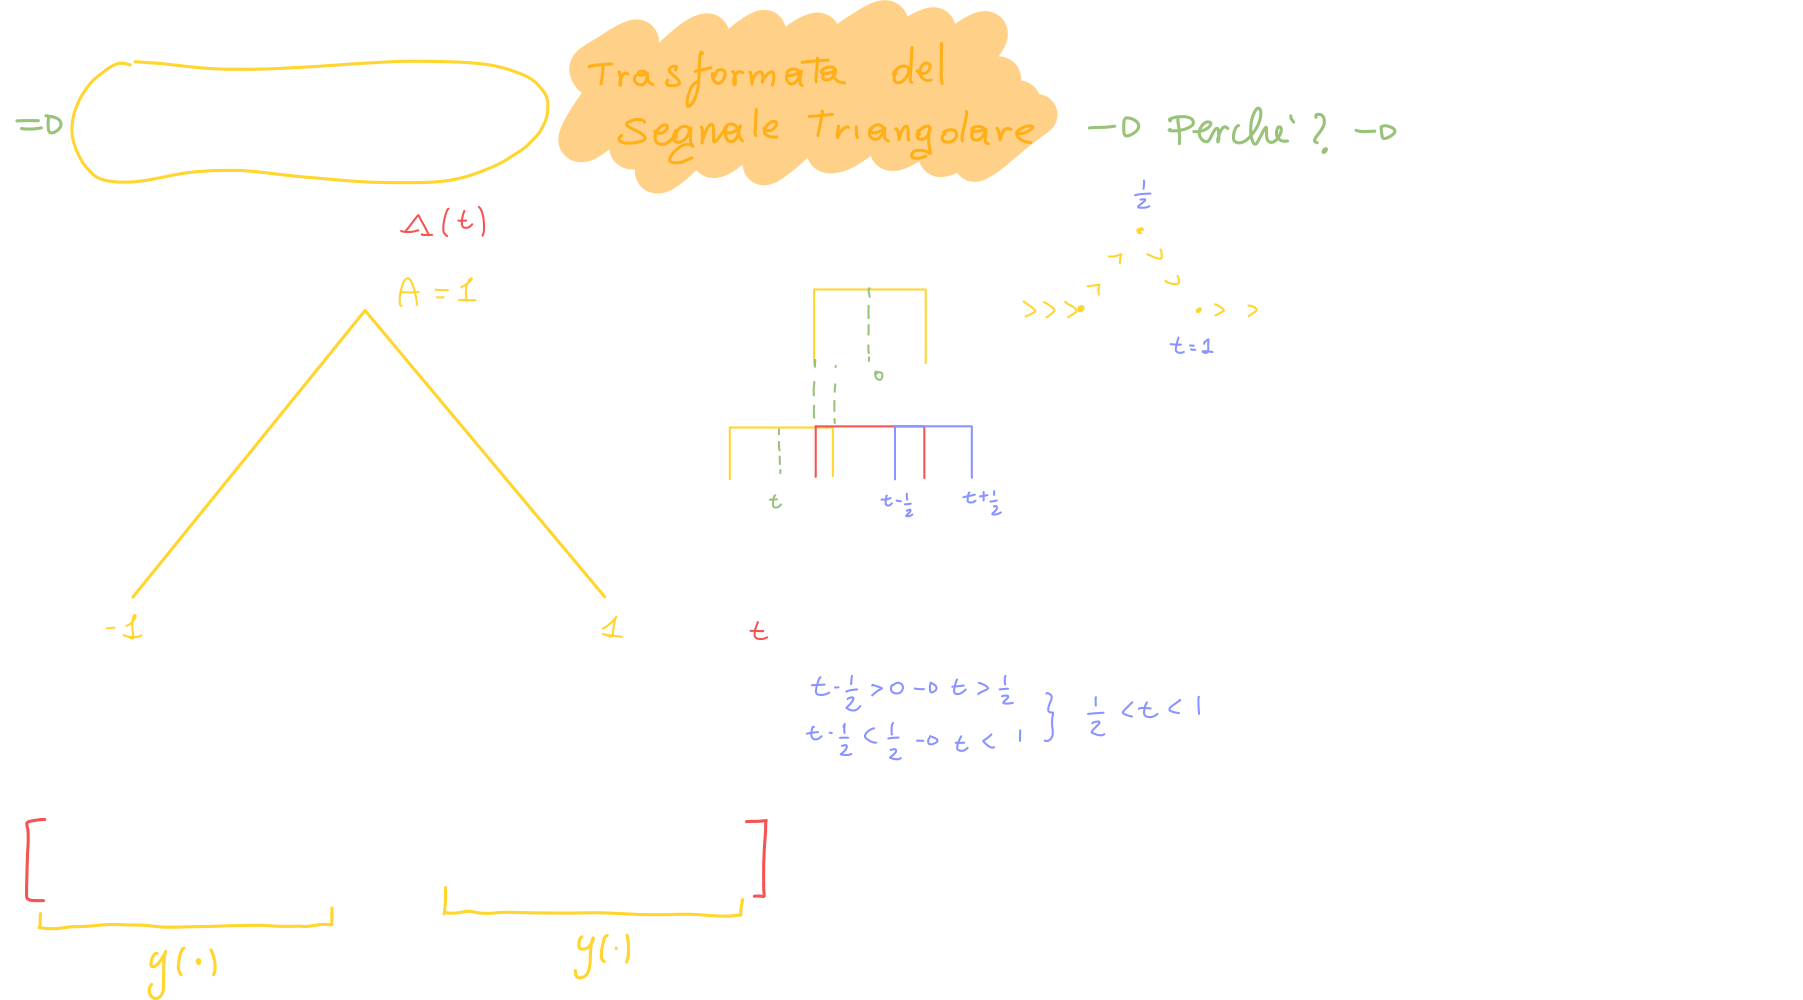 Trasformata del
=D Segnale Triangolare -D Perché? -D
1/2
Δ(t)
A = 1
>>> > >
t=1
0
t t-1/2 t+1/2
-1 1 t
t-1/2 > 0 -D t > 1/2
t-1/2 < 1/2 -D t < 1 } 1/2 < t < 1
[ ]
y(·) y(·)